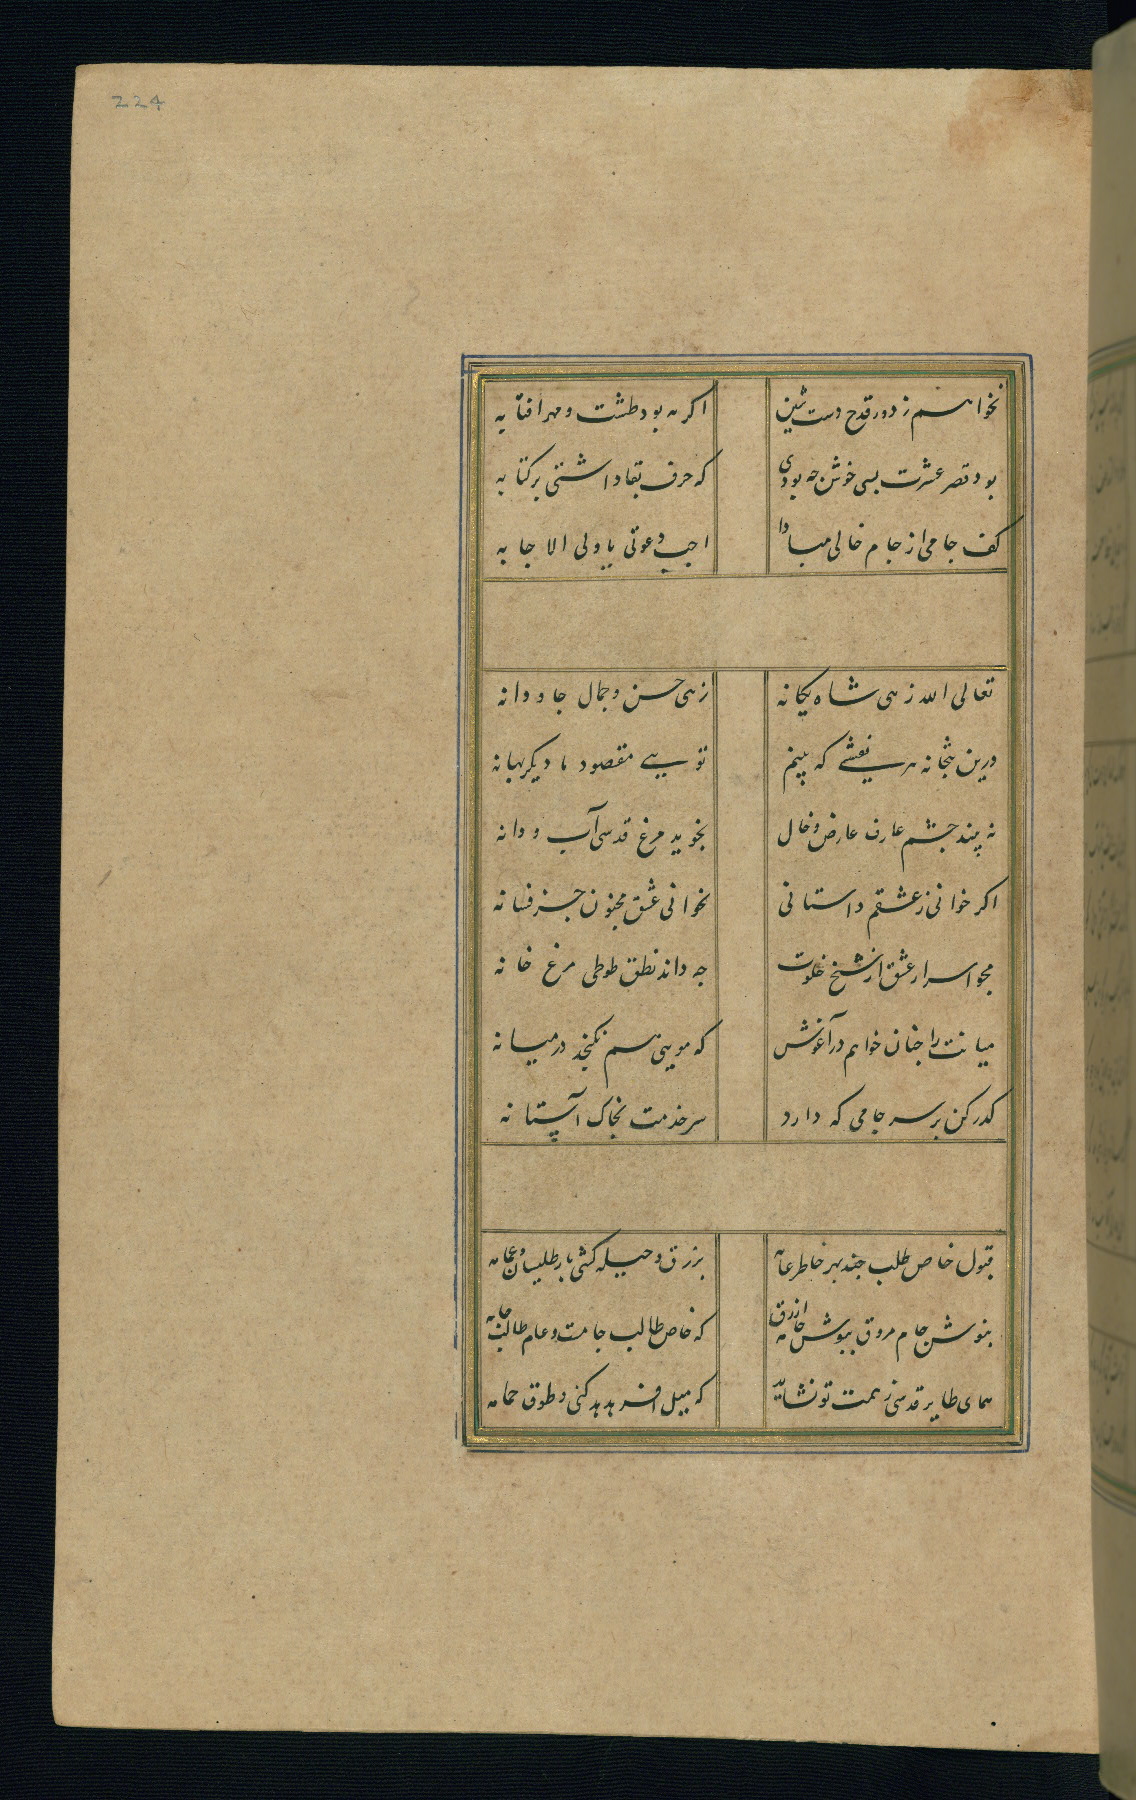 224
نخواهم ز دور قدح دست شستن اگر مه بود طشت و مهر افتابه
بود قصر عشرت بسی خوش چه بودی که حرف بقا داشتی بر کتابه
کف جامی از جام خالی مبادا اجب دعوتی یا ولی الاجابه
تعالی الله زهی شاه یکانه زهی حسن و جمال جاودانه
درین بتخانه هر نقشی که بینم تویی مقصود ما دیکر بهانه
نه بیند چشم عارف عارض و خال بخوید مرغ قدسی آب و دانه
اکر خوانی ز عشقم داستانی نخوانی عشق مجنون جز فسانه
مجو اسرار عشق از شیخ خلوت چه داند نطق طوطی مرغ خانه
میانت را چنان خواهم در آغوش که مویی هم نکنجد در میانه
کذر کن بر سر جامی که دارد سر خدمت بخاک آستانه
قبول خاص طلب چند بهر خاطر عامه بزرق و حیله کشی بار طیلسان و عمامه
بنوش جام مروق بپوش جامه ازرق که خاص طالب جامست و عام طالب جامه
همای طایر قدسی ز همت تو نشاید که میل افسر هدهد کنی و طوق حمامه